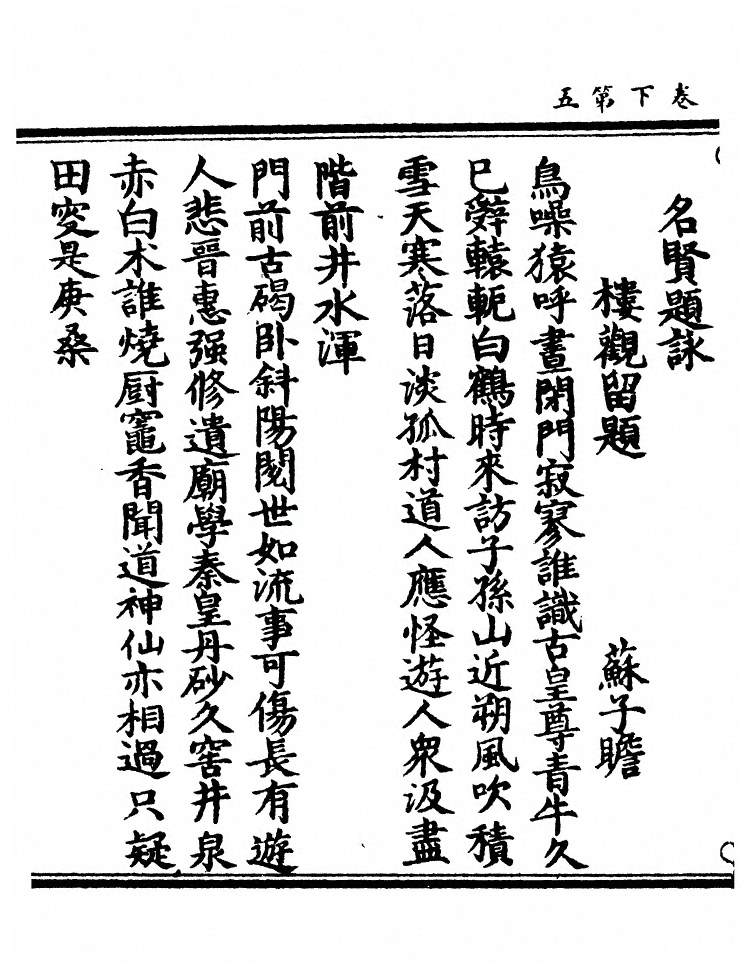 卷下第五
名賢題詠
樓觀留題 蘇子瞻
鳥噪猿呼晝閉門寂寥誰識古皇尊青牛久
已辭轅軛白鶴時來訪子孫山近朔風吹積
雪天寒落日淡孤村道人應怪遊人衆汲盡
階前井水渾
門前古碣卧斜陽閱世如流事可傷長有遊
人悲晉惠强修遺廟學秦皇丹砂久窖井泉
赤白术誰燒厨竈香聞道神仙亦相過只疑
田叟是庚桑